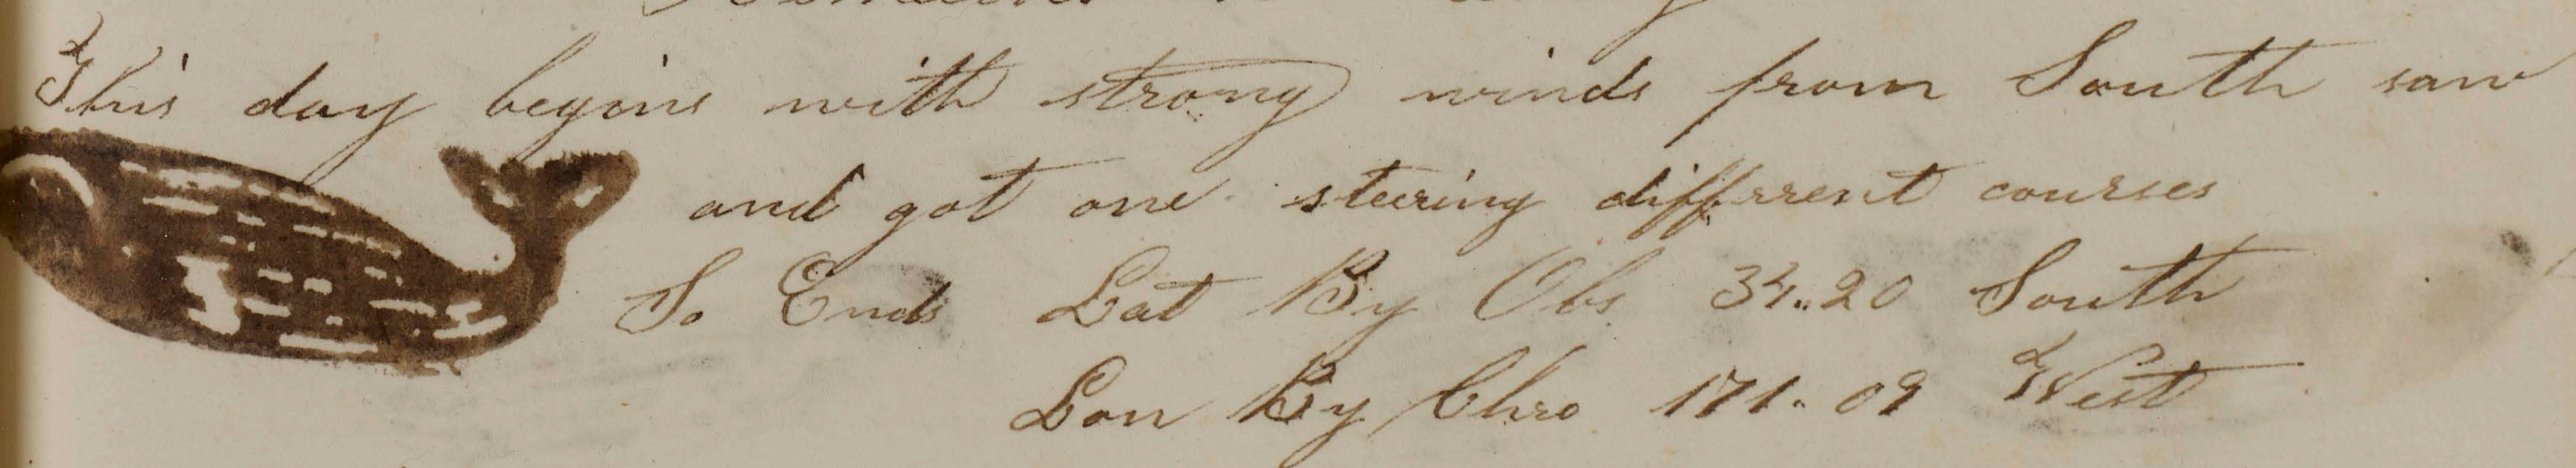 This day begins with strong winds from South saw
and got one steering diffrrent courses
So Ends Lat By Obs 34..20 South
Lon By Chro 171.. 09 West